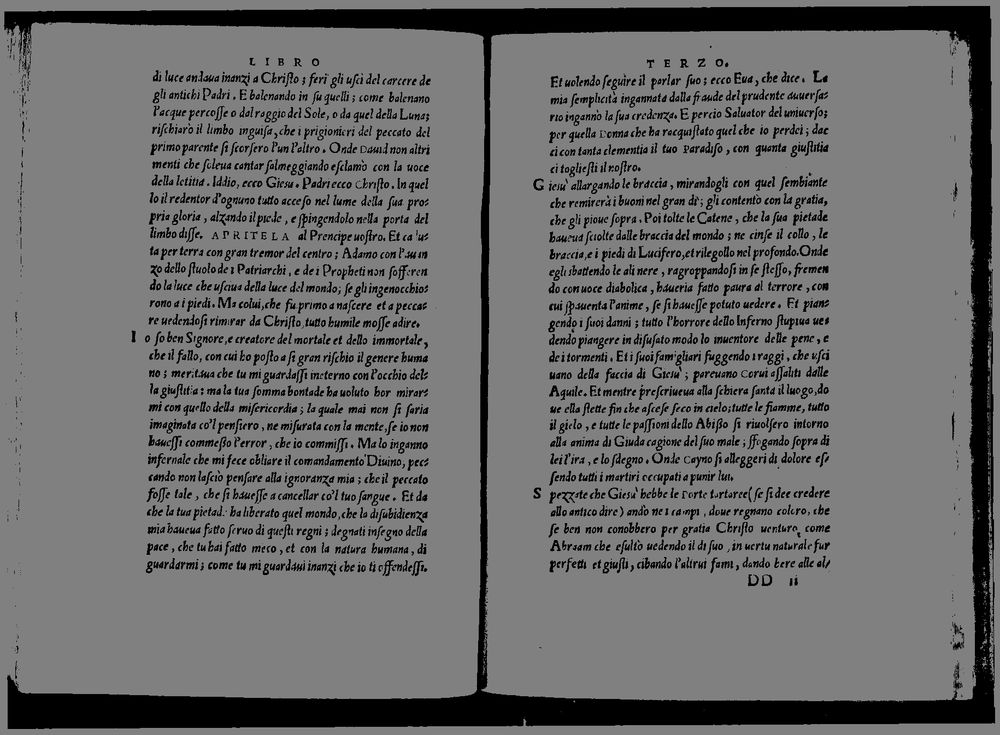 LIBRO
di luce andaua inanzi a Christo; ferì gli usci del carcere de
gli antichi Padri. E balenando in su quelli; come balenano
l'acque percosse o dal raggio del Sole, o da quel della Luna;
rischiarò il limbo inguisa, che i prigionieri del peccato del
primo parente si scorsero l'un l'altro. Onde DAUID non altri
menti che soleua cantar salmeggiando esclamò con la uoce
della letitia. Iddio, ecco Giesu. Padri ecco Christo. In quel
lo il redentor d'ognuno tutto acceso nel lume della sua pro-
pria gloria, alzando il piede, e spingendolo nella porta del
limbo disse. APRITELA al Prencipe uostro. Et ca
ta per terra con gran tremor del centro; Adamo con
zo dello stuolo de i Patriarchi, e de i Propheti non sofferen
do la luce che usciua della luce del mondo; se gli ingenocchio-
rono a i piedi. Ma colui, che fu primo a nascere et a pecca-
re uedendosi rimirar da Christo, tutto humile mosse adire.
Io so ben Signore, e creatore del mortale et dello immortale,
che il fallo, con cui ho posto a si gran rischio il genere huma
no; meritaua che tu mi guardassi in eterno con l'occhio del-
la giustitia: ma la tua somma bontade ha uoluto hor mirar-
mi con quello della misericordia; la quale mai non si saria
imaginata co'l pensiero, ne misurata con la mente, se io non
hauessi commesso l'error, che io commissi. Ma lo inganno
infernale che mi fece obliare il comandamento Diuino, pec-
cando non lasciò pensare alla ignoranza mia; che il peccato
fosse tale, che si hauesse a cancellar co'l tuo sangue. Et da
che la tua pietad ha liberato quel mondo, che la disubidienza
mia haueua fatto seruo di questi regni; degnati insegno della
pace, che tu hai fatto meco, et con la natura humana, di
guardarmi; come tu mi guardaui inanzi che io ti offendessi.
TERZO.
Et uolendo seguire il parlar suo; ecco Eua, che dice. La
mia semplicità ingannata dalla fraude del prudente auuersa-
rio ingannò la sua credenza. E perciò Saluator del uniuerso;
per quella Donna che ha racquistato quel che io perdei; dac
ci con tanta clementia il tuo Paradiso, con quanta giustitia
ci togliesti il nostro.
Giesu' allargando le braccia, mirandogli con quel sembiante
che remirerà i buoni nel gran dì; gli contentò con la gratia,
che gli pioue sopra. Poi tolte le Catene, che la sua pietade
haueua sciolte dalle braccia del mondo; ne cinse il collo, le
braccia, e i piedi di Lucifero, et rilegollo nel profondo. Onde
egli sbattendo le ali nere, ragroppandosi in se stesso, fremen
do con uoce diabolica, haueria fatto paura al terrore, con
cui spauenta l'anime, se si hauesse potuto uedere. Et pian-
gendo i suoi danni; tutto l'horrore dello Inferno stupiua ue-
dendo piangere in disusato modo lo inuentore delle pene, e
de i tormenti. Et i suoi famigliari fuggendo i raggi, che usci
uano della faccia di Giesu'; pareuano Corui assaliti dalle
Aquile. Et mentre prescriueua alla schiera santa il luogo, do
ue ella stette fin che ascese seco in cielo; tutte le fiamme, tutto
il gielo, e tutte le passioni dello Abisso si riuolsero intorno
alla anima di Giuda cagione del suo male; sfogando sopra di
lei l'ira, e lo sdegno. Onde Cayno si alleggerì di dolore es-
sendo tutti i martiri occupati a punir lui.
Spezzate che Giesu' hebbe le Porte tartaree (se si dee credere
allo antico dire) andò ne i campi, doue regnano coloro, che
se ben non conobbero per gratia Christo uenturo, come
Abraam che esultò uedendo il dì suo, in uertu naturale fur
perfetti et giusti, cibando l'altrui fami, dando bere alle al/
DD ii